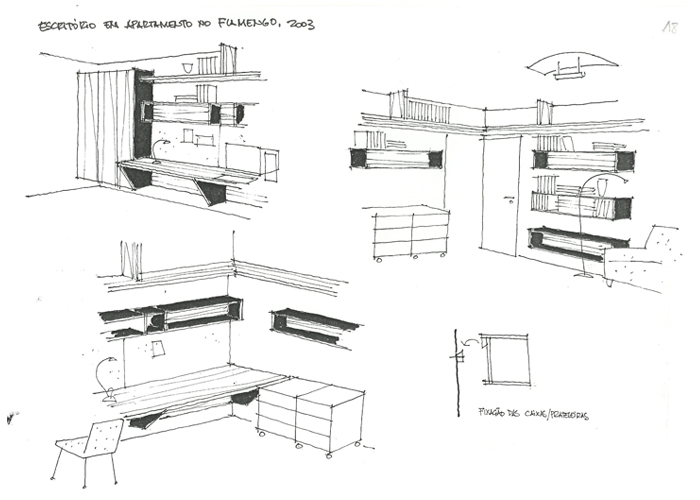 ESCRITÓRIO EM APARTAMENTO NO FLAMENGO, 2003
18
FIXAÇÃO DAS CAIXAS/PRATELEIRAS